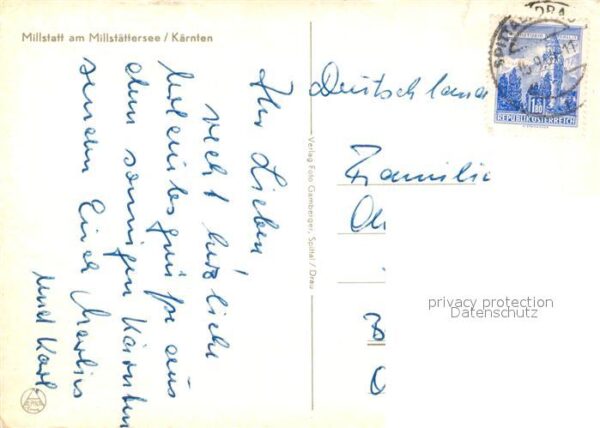 Millstatt am Millstättersee / Kärnten
Ihr Lieben,
recht herzliche
Urlaubsgrüße aus
dem sonnigen Kärnten
senden Euch
und Karl
Verlag Foto Gamberger, Spittal / Drau
Deutschland
Familie
REPUBLIK ÖSTERREICH
1.80
privacy protection
Datenschutz